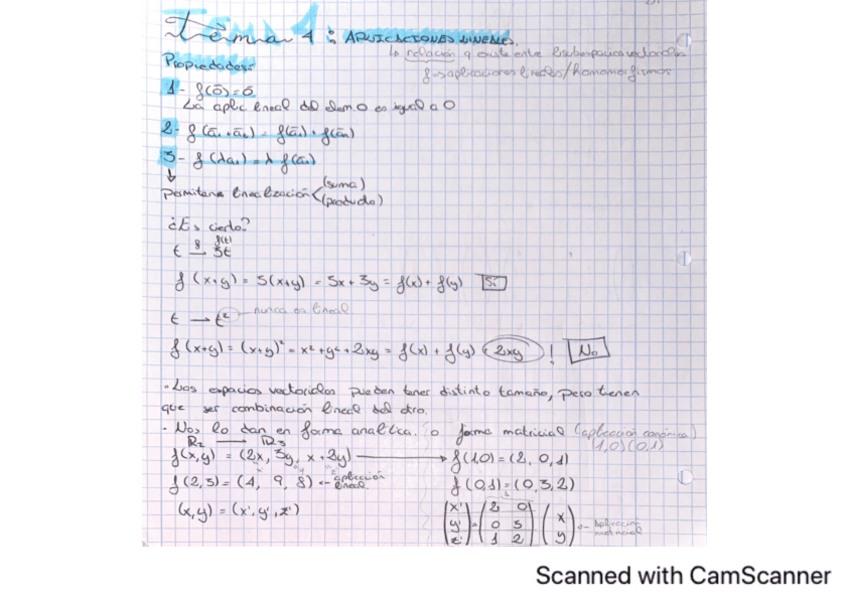 Tema 4: APLICACIONES LINEALES.
↳ relación q existe entre 2 subespacios vectoriales
aplicaciones lineales/homomorfismos
Propiedades:
1- f(ō)=ō
La aplic lineal del elem 0 es igual a 0
2- f(ā₁+ā₂) = f(ā₁)+f(ā₂)
3- f(λa₁) = λ f(ā₁)
↓
linealización (suma)
(producto)
¿Es cierto?
f(t)
t → 5t
f(x+y) = 5(x+y) = 5x + 5y = f(x) + f(y) Sí
t → t² nunca es lineal
f(x+y) = (x+y)² = x²+y²+2xy = f(x) + f(y) 2xy ! No
· Los espacios vectoriales pueden tener distinto tamaño, pero tienen
que ser combinación lineal del otro.
· Nos lo dan en forma analítica o forma matricial (aplicación canónica)
R₂ → R₃ 1,0) (0,1)
f(x,y) = (2x, 3y, x+2y) → f(1,0) = (2, 0, 1)
f(2,3) = (4, 9, 8) ← aplicación lineal. f(0,1) = (0,3,2)
(x,y) = (x',y',z') (x' y' z') = (2 0 0 3 1 2) (x y) ← aplicación matricial
Scanned with CamScanner